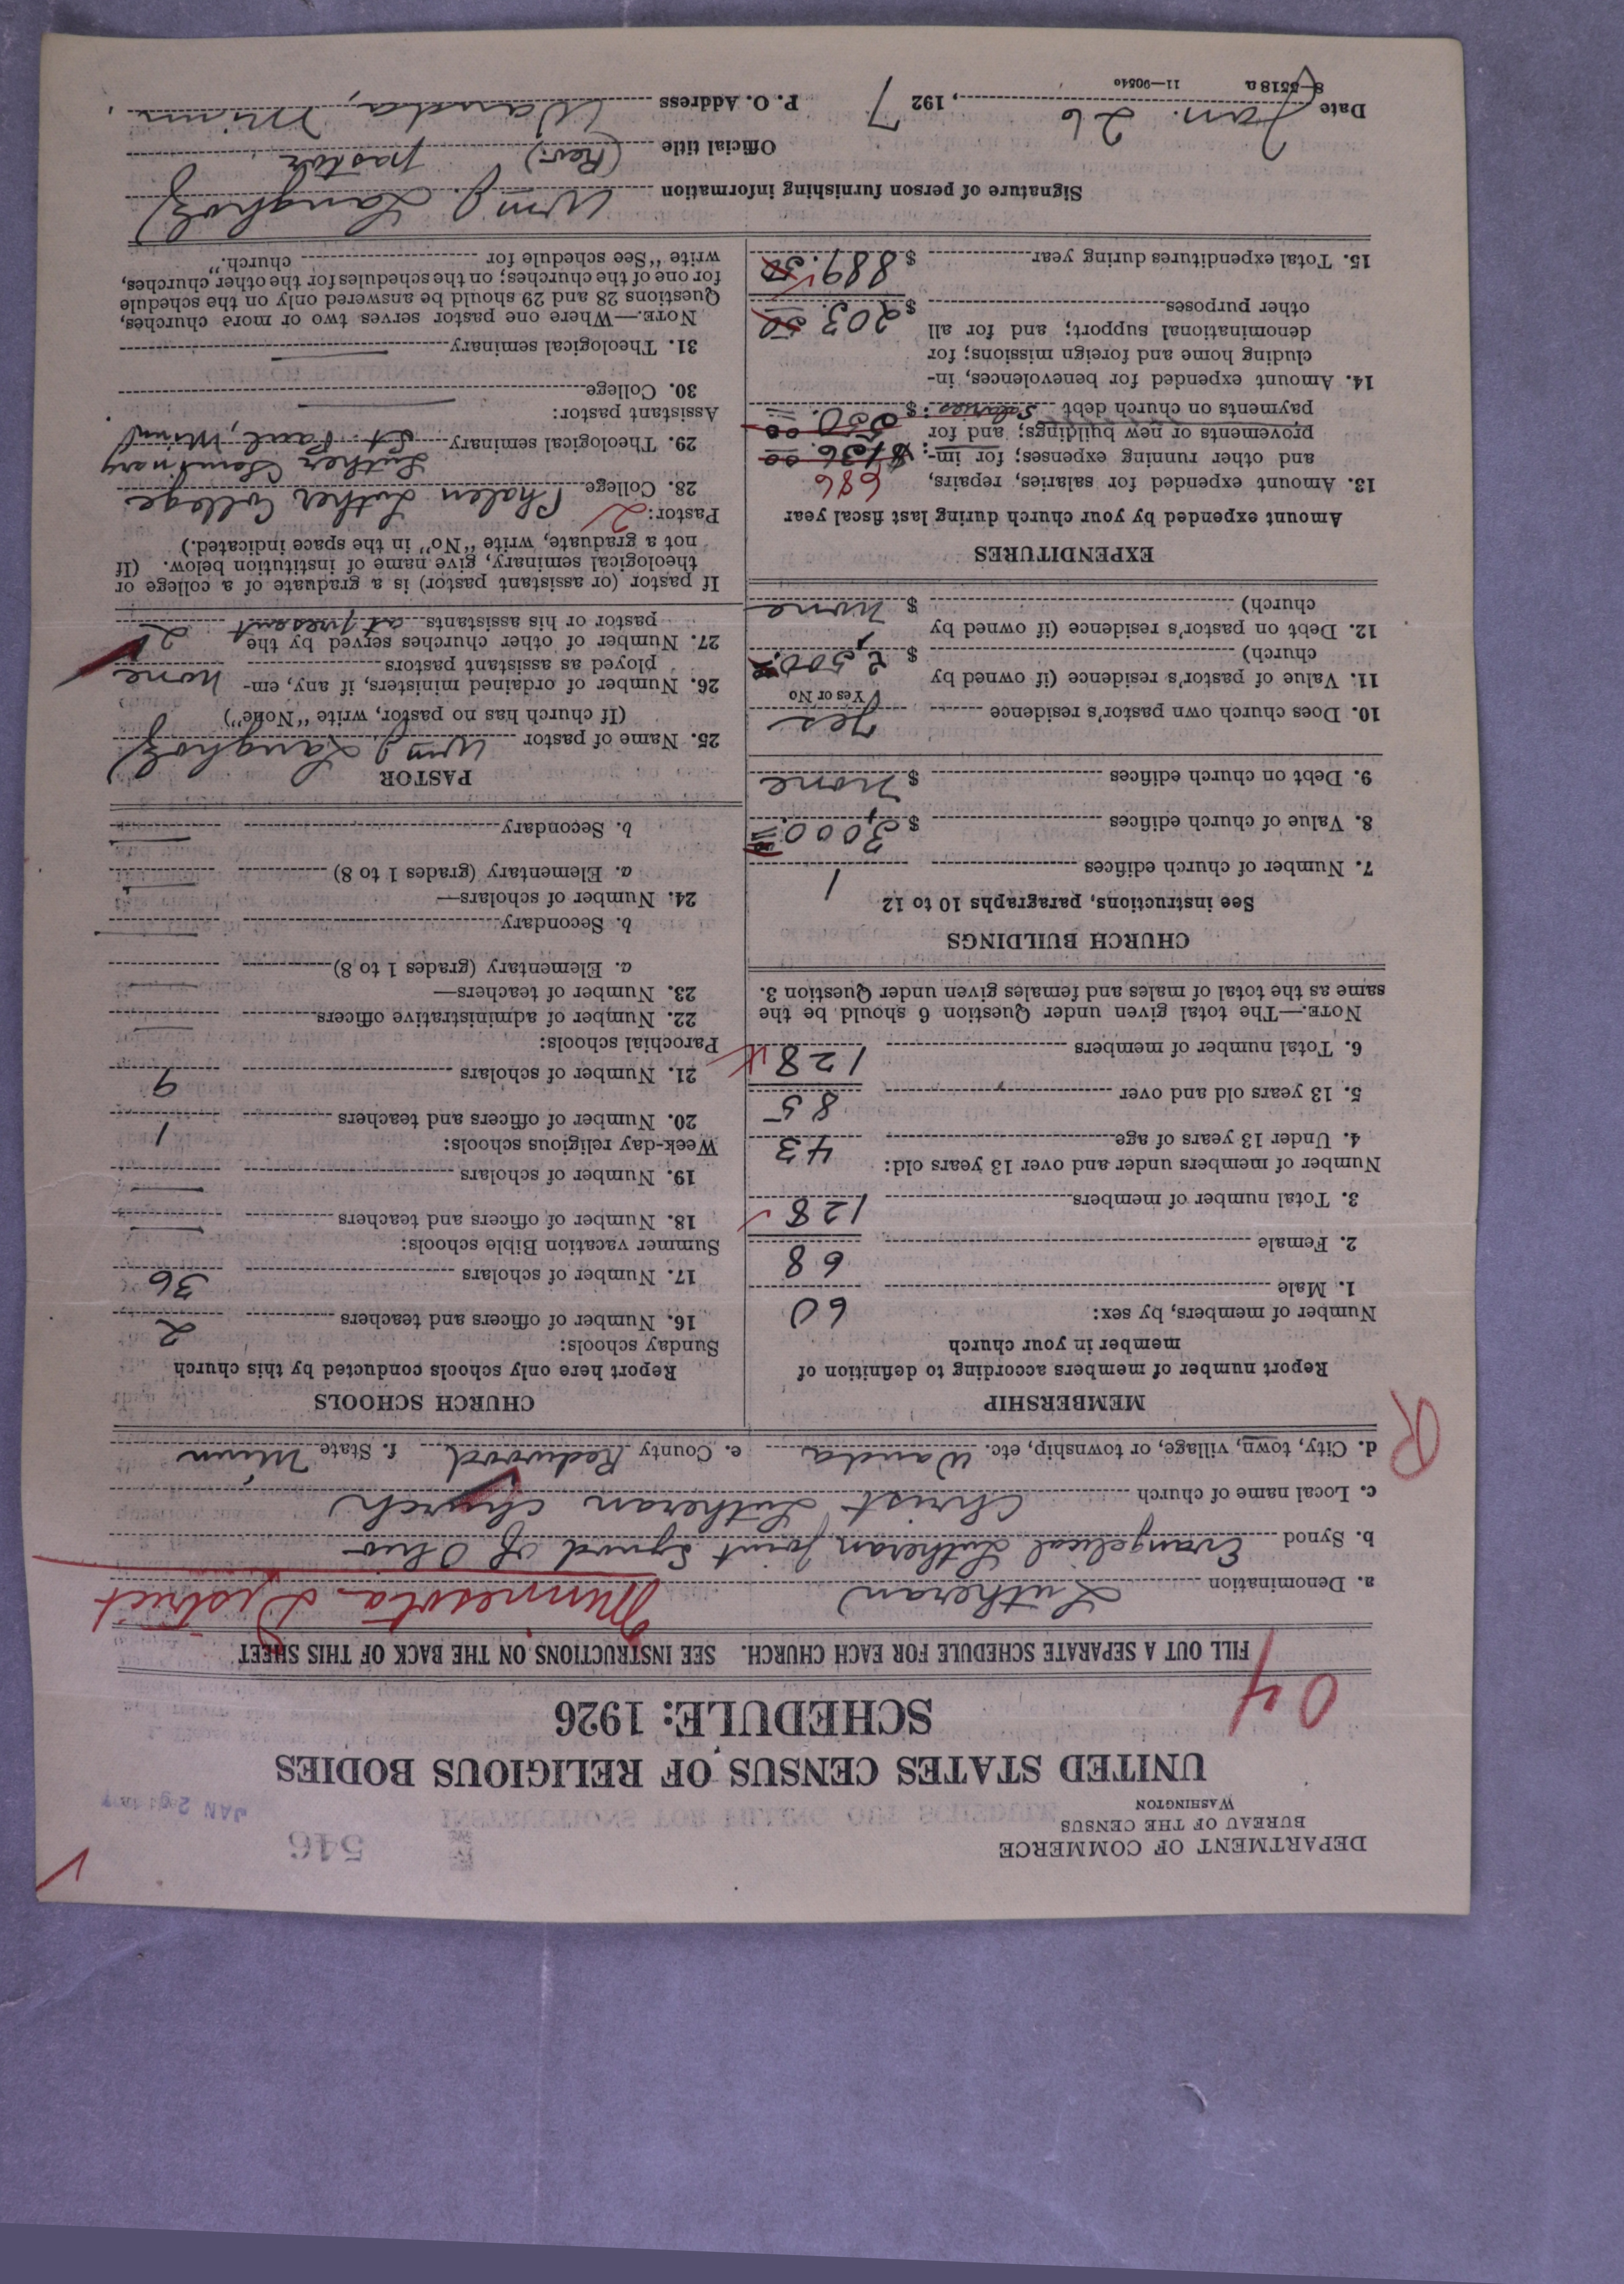 DEPARTMENT OF COMMERCE
BUREAU OF THE CENSUS
WASHINGTON
546
JAN 29 1927
UNITED STATES CENSUS OF RELIGIOUS BODIES
SCHEDULE: 1926
04
FILL OUT A SEPARATE SCHEDULE FOR EACH CHURCH. SEE INSTRUCTIONS ON THE BACK OF THIS SHEET
a. Denomination Lutheran Minnesota District
b. Synod Evangelical Lutheran Joint Synod of Ohio
c. Local name of church Christ Lutheran Church
d. City, town, village, or township, etc. Wanda e. County Redwood f. State Minn
R
MEMBERSHIP
Report number of members according to definition of
member in your church
Number of members, by sex:
1. Male 60
2. Female 68
3. Total number of members 128
Number of members under and over 13 years old:
4. Under 13 years of age 43
5. 13 years old and over 85
6. Total number of members 128
NOTE.—The total given under Question 6 should be the
same as the total of males and females given under Question 3.
CHURCH BUILDINGS
See instructions, paragraphs 10 to 12
7. Number of church edifices 1
8. Value of church edifices $ 3,000.00
9. Debt on church edifices $ none
10. Does church own pastor's residence yes
Yes or No
11. Value of pastor's residence (if owned by
church) $ 2,500.
12. Debt on pastor's residence (if owned by
church) $ none
EXPENDITURES
Amount expended by your church during last fiscal year
13. Amount expended for salaries, repairs, 686
and other running expenses; for im- $ 136.00
provements or new buildings; and for
payments on church debt salaries: $ 550.00
14. Amount expended for benevolences, in-
cluding home and foreign missions; for
denominational support; and for all
other purposes $ 203.50
15. Total expenditures during year $ 889.50
CHURCH SCHOOLS
Report here only schools conducted by this church
Sunday schools:
16. Number of officers and teachers 2
17. Number of scholars 36
Summer vacation Bible schools:
18. Number of officers and teachers
19. Number of scholars
Week-day religious schools:
20. Number of officers and teachers 1
21. Number of scholars 9
Parochial schools:
22. Number of administrative officers
23. Number of teachers—
a. Elementary (grades 1 to 8)
b. Secondary
24. Number of scholars—
a. Elementary (grades 1 to 8)
b. Secondary
PASTOR
25. Name of pastor Wm J. Langholz
(If church has no pastor, write "None")
26. Number of ordained ministers, if any, em-
ployed as assistant pastors none
27. Number of other churches served by the
pastor or his assistants at present 2
If pastor (or assistant pastor) is a graduate of a college or
theological seminary, give name of institution below. (If
not a graduate, write "No" in the space indicated.)
Pastor: 2
28. College Phalen Luther College
Luther Seminary
29. Theological seminary St. Paul, Minn
Assistant pastor:
30. College
31. Theological seminary
NOTE.—Where one pastor serves two or more churches,
Questions 28 and 29 should be answered only on the schedule
for one of the churches; on the schedules for the other churches,
write "See schedule for church."
Signature of person furnishing information Wm J. Langholz
Official title (Rev.) pastor
Date Jan. 26, 1927 P. O. Address Wanda, Minn.
8—5518a 11—90540